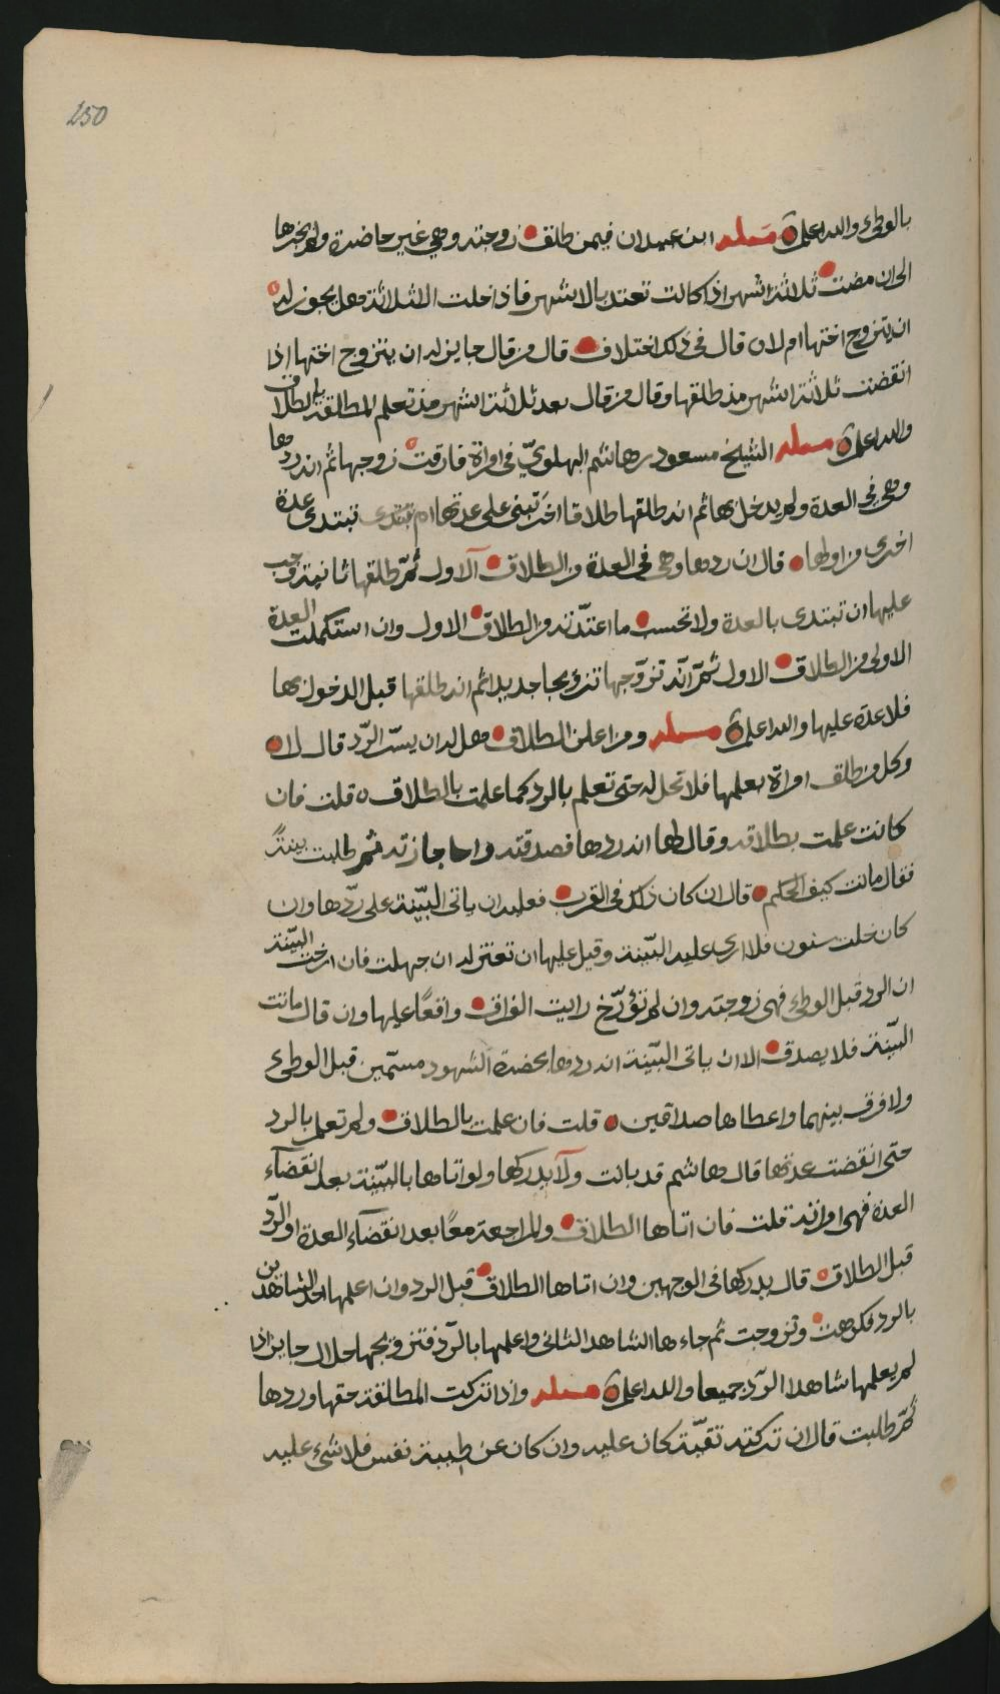 250
بالوطئ والله اعلم مسئلة ابن عبيدان فيمن طلق زوجته وهي غير حاضرة ولم يخبرها
الى ان مضت ثلاثة اشهر اذا كانت تعتد بالاشهر فاذا خلت الثلاثة هل يجوز له
ان يتزوج اختها ام لا قال في ذلك اختلاف قال من قال جايز له ان يتزوج اختها اذا
انقضت ثلاثة اشهر مذ طلقها وقال من قال بعد ثلاثة اشهر مذ تعلم المطلقة بالطلاق
والله اعلم مسئلة الشيخ مسعود بن هاشم البهلويّ في امراة فارقت زوجها ثم انه ردها
وهي في العدة ولم يدخل بها ثم انه طلقها طلاقا اخر تبني على عدتها ام تبتدى عدة
اخرى من اولها قال ان ردها وهي في العدة من الطلاق الاول ثمّ طلقها ثانية وجب
عليها ان تبتدى بالعدة ولا تحسب ما اعتدّته من الطلاق الاول وان استكملت العدة
الاولى من الطلاق الاول ثمّ انّه تزوّجها تزويجا جديدا ثم انه طلقها قبل الدخول بها
فلا عدة عليها والله اعلم مسئلة ومن اعلن الطلاق هل له ان يسرّ الردّ قال لا
وكل من طلق امراة بعلمها فلا تحل له حتى تعلم بالرد كما علمت بالطلاق قلت فان
كانت علمت بطلاقه وقال لها انه ردها فصدقته واجازته ثم طلبت بينةً
فقال ماتت كيف الحكم قال ان كان ذلك في القرب فعليه ان ياتى البيّنة على ردّها وان
كان خلت سنون فلا ارى عليه البيّنة وقيل عليها ان تعتزله ان جهلت فان ارخت البيّنة
ان الرد قبل الوطئ فهي زوجته وان لم تؤرّخ رايت الفراق واقعًا عليها وان قال ماتت
البيّنة فلا يصدق الا ان ياتى البيّنة انه ردها بحضرة الشهود مسمّين قبل الوطئ
ولا فرق بينهما واعطاها صداقين قلت فان علمت بالطلاق ولم تعلم بالرد
حتى انقضت عدتها قال هاشم قد بانت ولا يدركها ولو اتاها بالبيّنة بعد انقضآء
العدة فهي امراته قلت فان اتاها الطلاق والمراجعة معًا بعد انقضآء العدة او الردّ
قبل الطلاق قال يدركها في الوجهين وان اتاها الطلاق قبل الرد وان اعلمها احد الشاهدين
بالرد فكرهت وتزوجت ثم جاءها الشاهد الثاني واعلمها بالرّد فتزويجها حلال جايز اذا
لم يعلمها شاهدا الرّد جميعا والله اعلم مسئلة واذا تركت المطلقة حقها وردها
ثمّ طلبت قال ان تركته تقيّة كان عليه وان كان عن طيبة نفس فلا شئ عليه